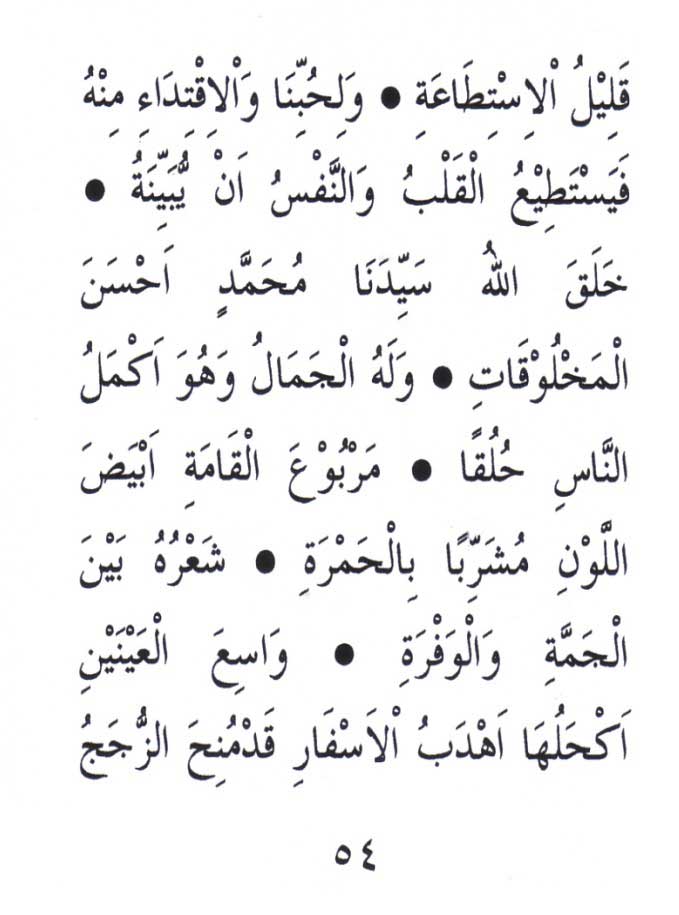 قَلِيْلُ اْلاِسْتِطَاعَةِ ● وَلِحُبِّنَا وَاْلاِقْتِدَاءِ مِنْهُ
فَيَسْتَطِيْعُ الْقَلْبُ وَالنَّفْسُ اَنْ يُّبَيِّنَةُ ●
خَلَقَ اللهُ سَيِّدَنَا مُحَمَّدٍ اَحْسَنَ
الْمَخْلُوْقَاتِ ● وَلَهُ الْجَمَالُ وَهُوَ اَكْمَلُ
النَّاسِ حُلُقًا ● مَرْبُوْعَ الْقَامَةِ اَبْيَضَ
اللَّوْنِ مُشَرِّبًا بِالْحَمْرَةِ ● شَعْرُهُ بَيْنَ
الْجَمَّةِ وَالْوَفْرَةِ ● وَاسِعَ الْعَيْنَيْنِ
اَكْحَلُهَا اَهْدَبُ اْلاَسْفَارِ قَدْمُنِحَ الزُّجَجُ
٥٤